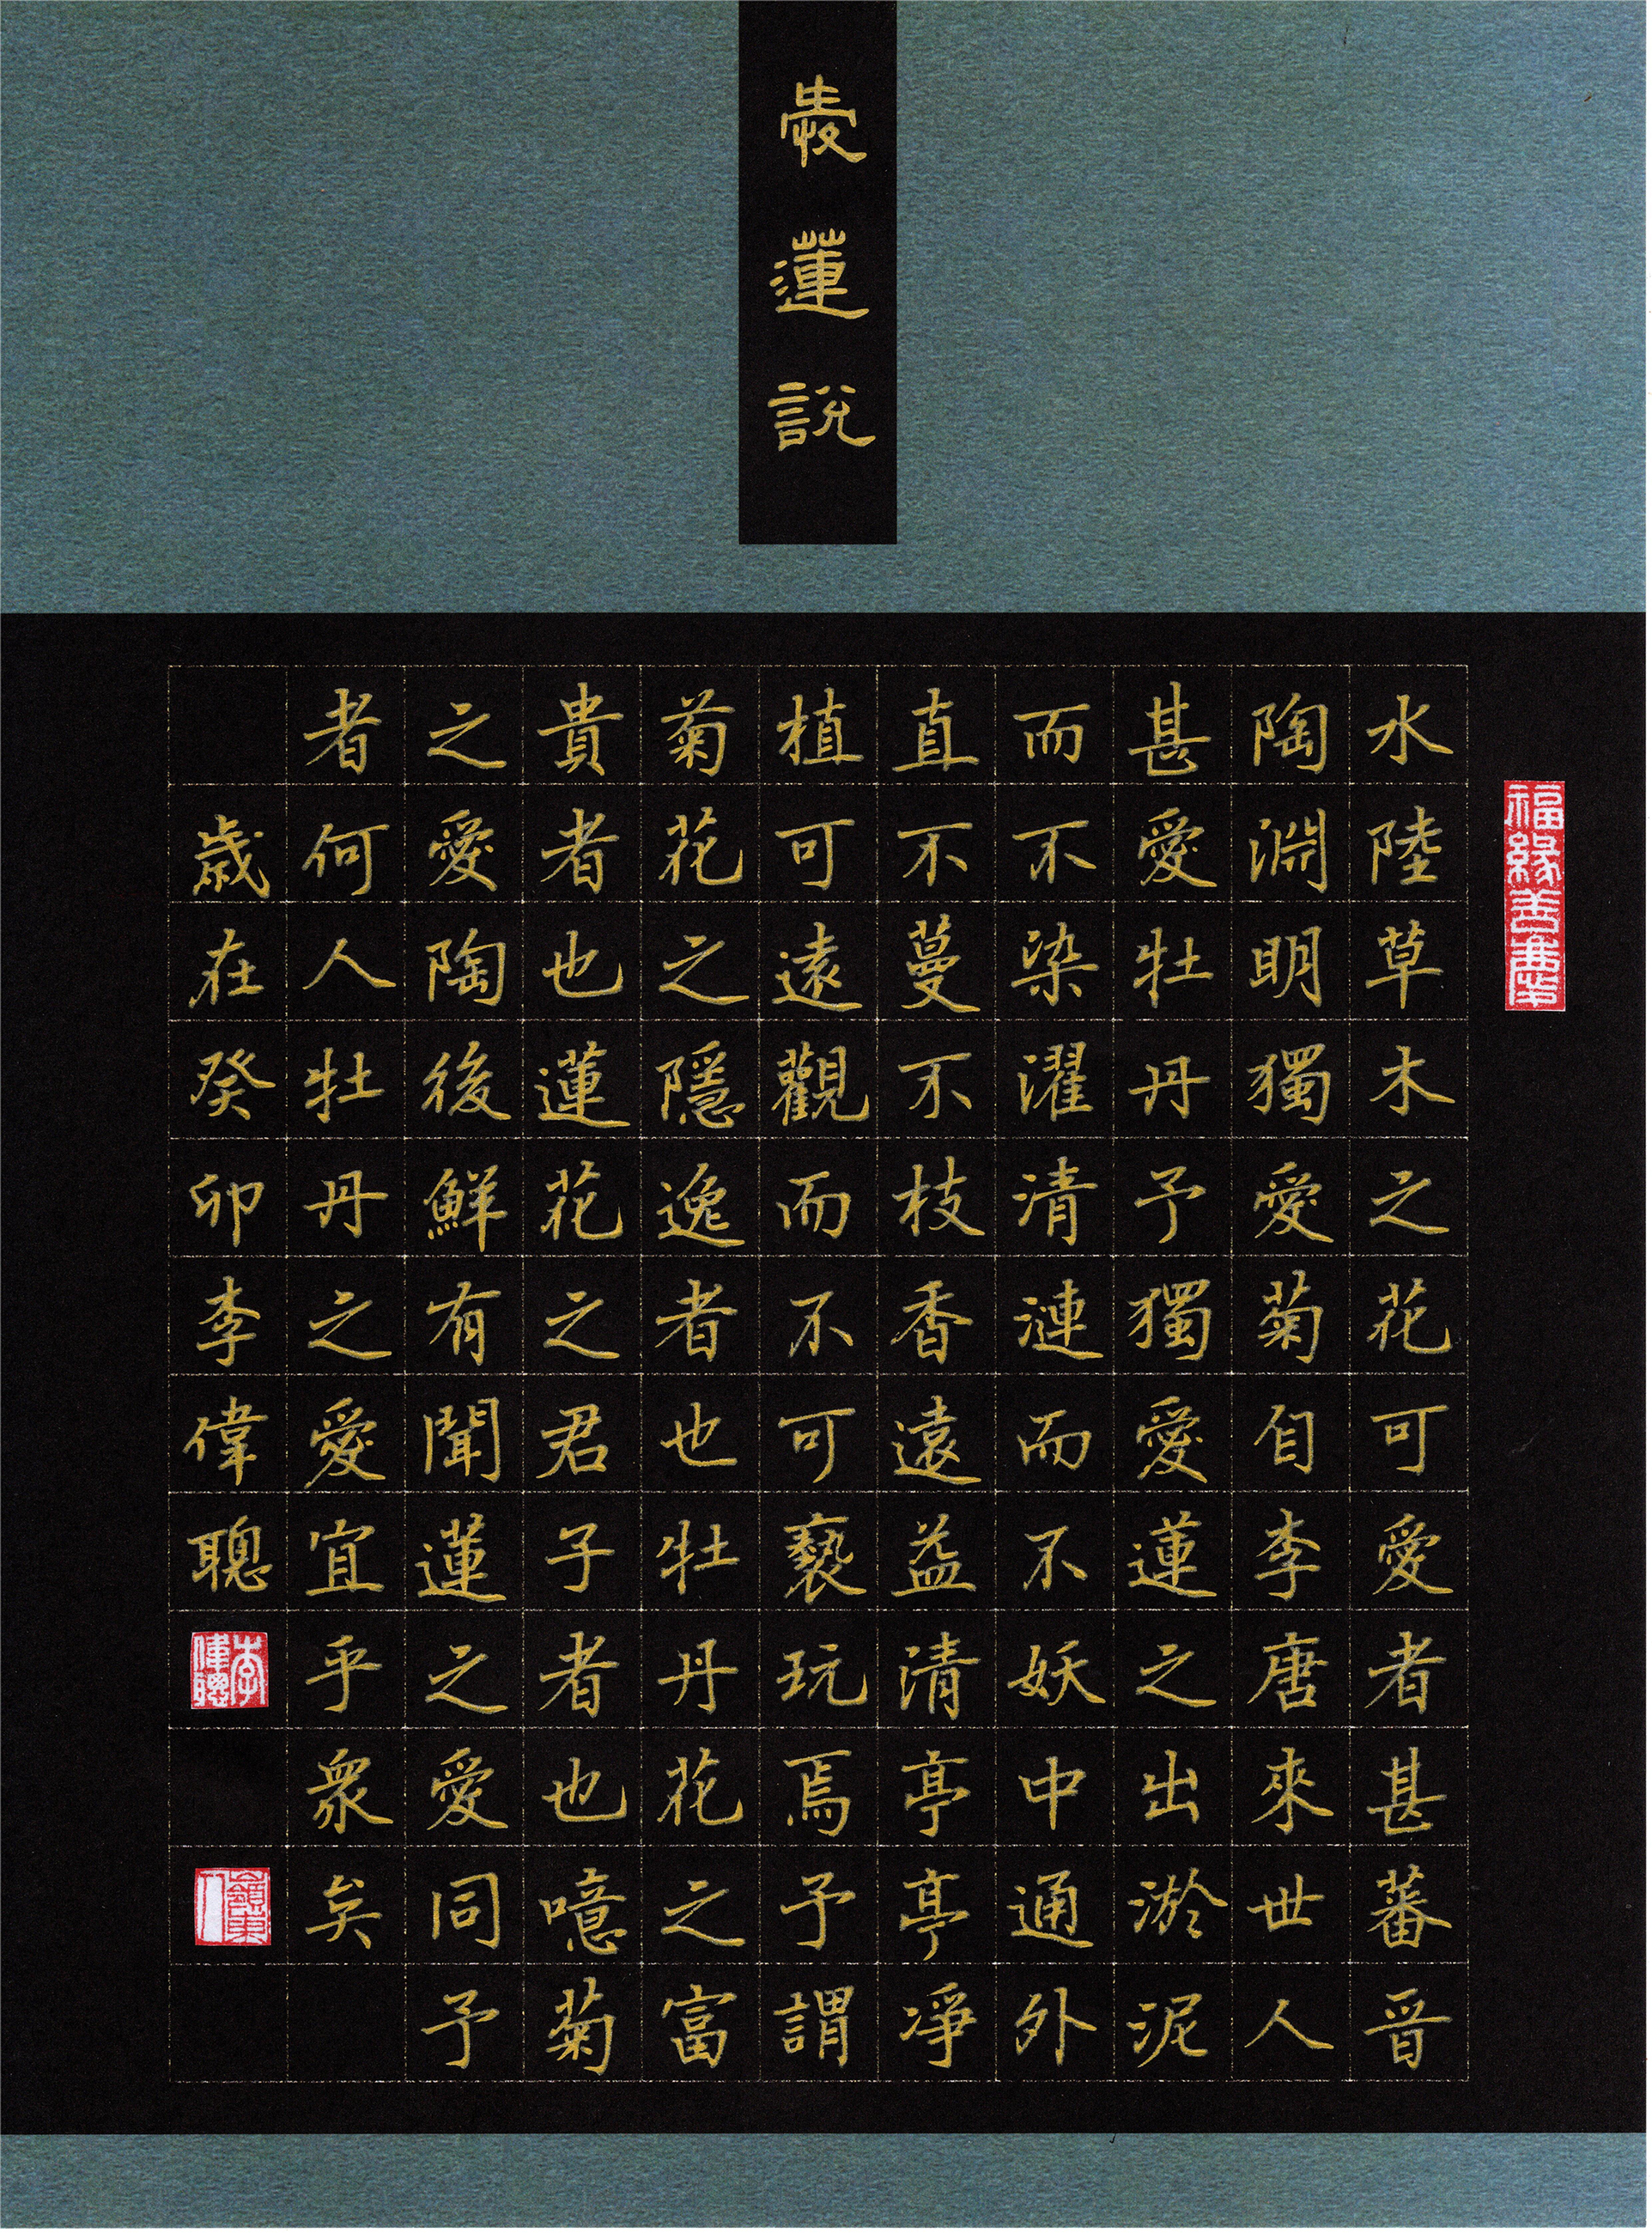 愛蓮說
水陸草木之花可愛者甚蕃晋
陶淵明獨愛菊自李唐來世人
甚愛牡丹予獨愛蓮之出淤泥
而不染濯清漣而不妖中通外
直不蔓不枝香遠益清亭亭凈
植可遠觀而不可褻玩焉予謂
菊花之隱逸者也牡丹花之富
貴者也蓮花之君子者也噫菊
之愛陶後鮮有聞蓮之愛同予
者何人牡丹之愛宜乎衆矣
歲在癸卯李偉聰
福緣善慶
李偉聰